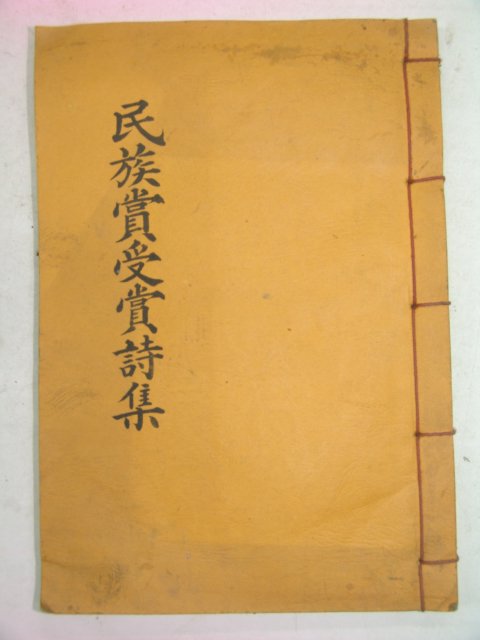 民族賞受賞詩集